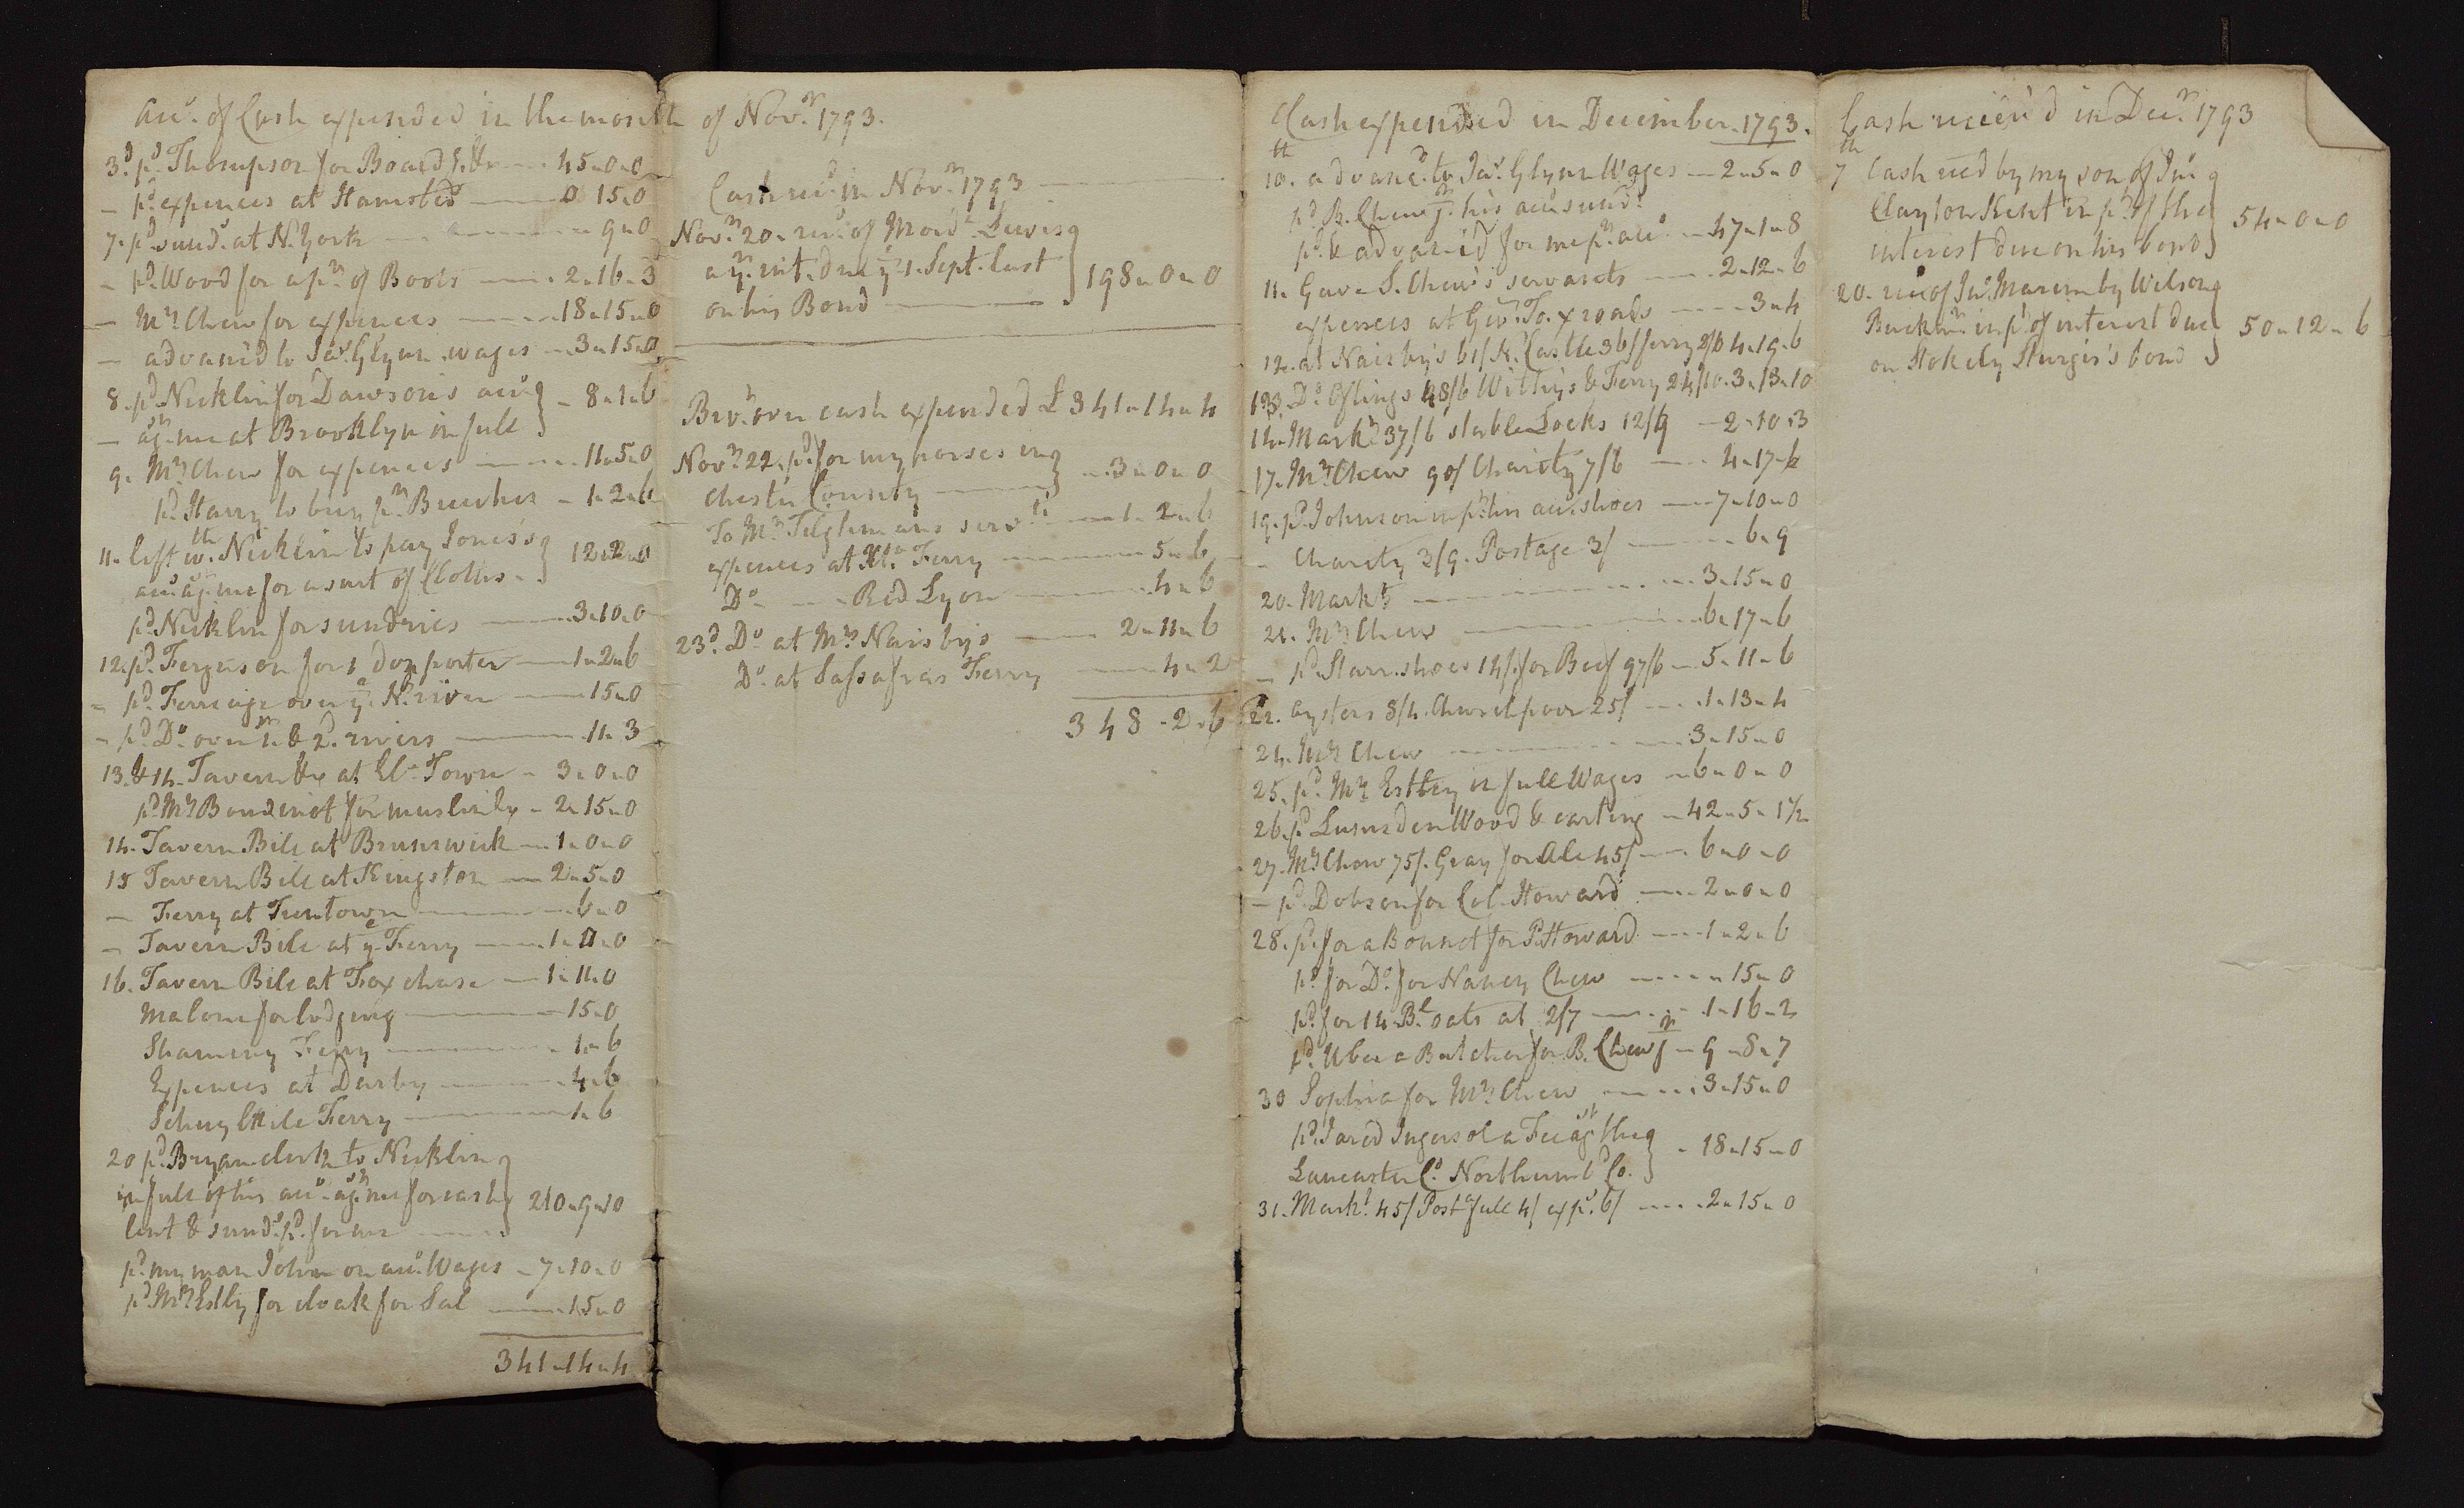 Accᵗ. of Cash expended in the month of Novʳ. 1793.
3ᵈ. pᵈ. Thompson for Board &c — 45 " 0 " 0
— pᵈ. expences at Hamsted — 0 15 " 0
7. pᵈ. sundˢ. at N. York — 9 " 0
— pᵈ. Wood for a pʳ. of Boots — 2 " 16 " 3
— Mʳˢ Chew for expences — 18 " 15 " 0
— advanc'd to Jaˢ. Glynn wages — 3 " 15 " 0
8. pᵈ. Nicklin for Dawson's accᵗ
— agˢᵗ. me at Brooklyn in full } — 8 " 1 " 6
9. Mʳˢ Chew for expences — 11 " 5 " 0
pᵈ. Harry to buy pʳ. Breeches — 1 " 2 " 6
11. left wᵗʰ. Nicklin to pay Jones's
accᵗ agˢᵗ. me for a suit of Cloths. } 12 " 2 " 0
pᵈ. Nicklin for sundries — 3 " 10 " 0
12. pᵈ. Ferguson for 1 doz porter — 1 " 2 " 6
— pᵈ. Ferriage over yᵉ. Nᵒ. river — 15 " 0
— pᵈ. Dᵒ. over 1ˢᵗ. & 2ᵈ. rivers — 11 " 3
13. & 14. Tavern &c at Elᶻ. Town — 3 " 0 " 0
pᵈ Mʳˢ Boudinot for muslin &c — 2 " 15 " 0
14. Tavern Bill at Brunswick — 1 " 0 " 0
15 Tavern Bill at Kingston — 2 " 5 " 0
— Ferry at Trentown — 6 " 0
— Tavern Bill at yᵉ. Ferry — 1 " 0 " 0
16. Tavern Bill at Fox chase — 1 " 11 " 0
Malone for lodging — 15 " 0
Shammy Ferry — 1 " 6
Expences at Darby — 4 " 6
Schuylkill Ferry — 1 " 6
20 pᵈ. Bryan clerk to Nicklin
in full of his accᵗ. agˢᵗ. me for cash
lent & sundˢ. pᵈ. for me } 210 " 9 " 10
pᵈ. my man John on accᵗ. Wages — 7 " 10 " 0
pᵈ. Mʳˢ Estby for cloak for Sal — 15 " 0
341 " 14 " 4
Cash recᵈ. in Novʳ. 1793
Novʳ. 20. recᵈ. of Mordᶜ. Lewis
a yʳˢ. int. due yᵉ 1. Sept. last
on his Bond } 198 " 0 " 0
Broᵗ. over cash expended £ 341 " 14 " 4
Novʳ. 22. pᵈ. for my horses in
Chester County } 3 " 0 " 0
To Mʳˢ Tilghmans servᵗˢ — 1 " 2 " 6
expences at Xᵃ. Ferry — 5 " 6
Dᵒ — Red Lyon — 4 " 6
23ᵈ. Dᵒ at Mʳˢ Naisby's — 2 " 11 " 6
Dᵒ. at Sassafras Ferry — 4 " 2
348 " 2 " 6
Cash expended in December. 1793.
10ᵗʰ. advanc'd to Jaˢ. Glynn Wages — 2 " 5 " 0
pᵈ B. Chew jʳ. his accᵗ sundˢ.
pᵈ & advanc'd for me pʳ. accᵗ — 47 " 1 " 8
11. Gave S. Chew's servants — 2 " 12 " 6
expences at Geo. To. x roads — 3 " 4
12. at Naisby's 61/ N. Castle 36/ ferry 2/6 4 " 19 " 6
13. Dᵒ. Oflings 48/6 Withy's & Ferry 24/10. 3 " 13 " 10
14. Markᵗ. 37/6 stable Locks 12/9 — 2 " 10 " 3
17. Mʳˢ Chew 90/ Charity 7/6 — 4 " 17 " 6
19. pᵈ. Johnson in pᵗ. his accᵗ. shoes — 7 " 10 " 0
— Charity 3/9. Postage 3/ — 6 " 9
20. Markᵗ — 3 " 15 " 0
21. Mʳˢ Chew — 6 " 17 " 6
— pᵈ. Starr. shoes 14/. for Beef 97/6 — 5 " 11 " 6
22. oysters 8/4. Church poor 25/ — 1 " 13 " 4
24. Mʳˢ Chew — 3 " 15 " 0
25. pᵈ. Mʳˢ Estby in full Wages — 6 " 0 " 0
26. pᵈ Lumsden Wood & carting — 42 " 5 " 1½
27. Mʳˢ Chew 75/. Gray for Ale 45/ — 6 " 0 " 0
— pᵈ. Dobson for Col. Howard — 2 " 0 " 0
28. pᵈ. for a Bonnet for P. Howard — 1 " 2 " 6
pᵈ for Dᵒ. for Nancy Chew — 15 " 0
pᵈ. for 14 Bˡ. oats at 2/7 — 1 " 16 " 2
pᵈ. Uber a Butcher for B. Chew jʳ — 9 " 8 " 7
30 Sophia for Mʳˢ Chew — 3 " 15 " 0
pᵈ. Jared Ingersol a Fee agˢᵗ. the
Lancaster Cᵒ. Northumbᵈ Co. } 18 " 15 " 0
31. Markᵗ. 45/ Post full 4/ expˢ. 6/ — 2 " 15 " 0
Cash receiv'd in Decʳ. 1793
7ᵗʰ Cash recd by my son of Jnᵒ
Clayton Kent in pᵗ. of the
interest due on his bond } 54 " 0 " 0
20. rec of Jnᵒ. Marim by Wilson
Buckⁿ. in pᵗ. of interest due
on Stokely Sturgis's bond } 50 " 12 " 6